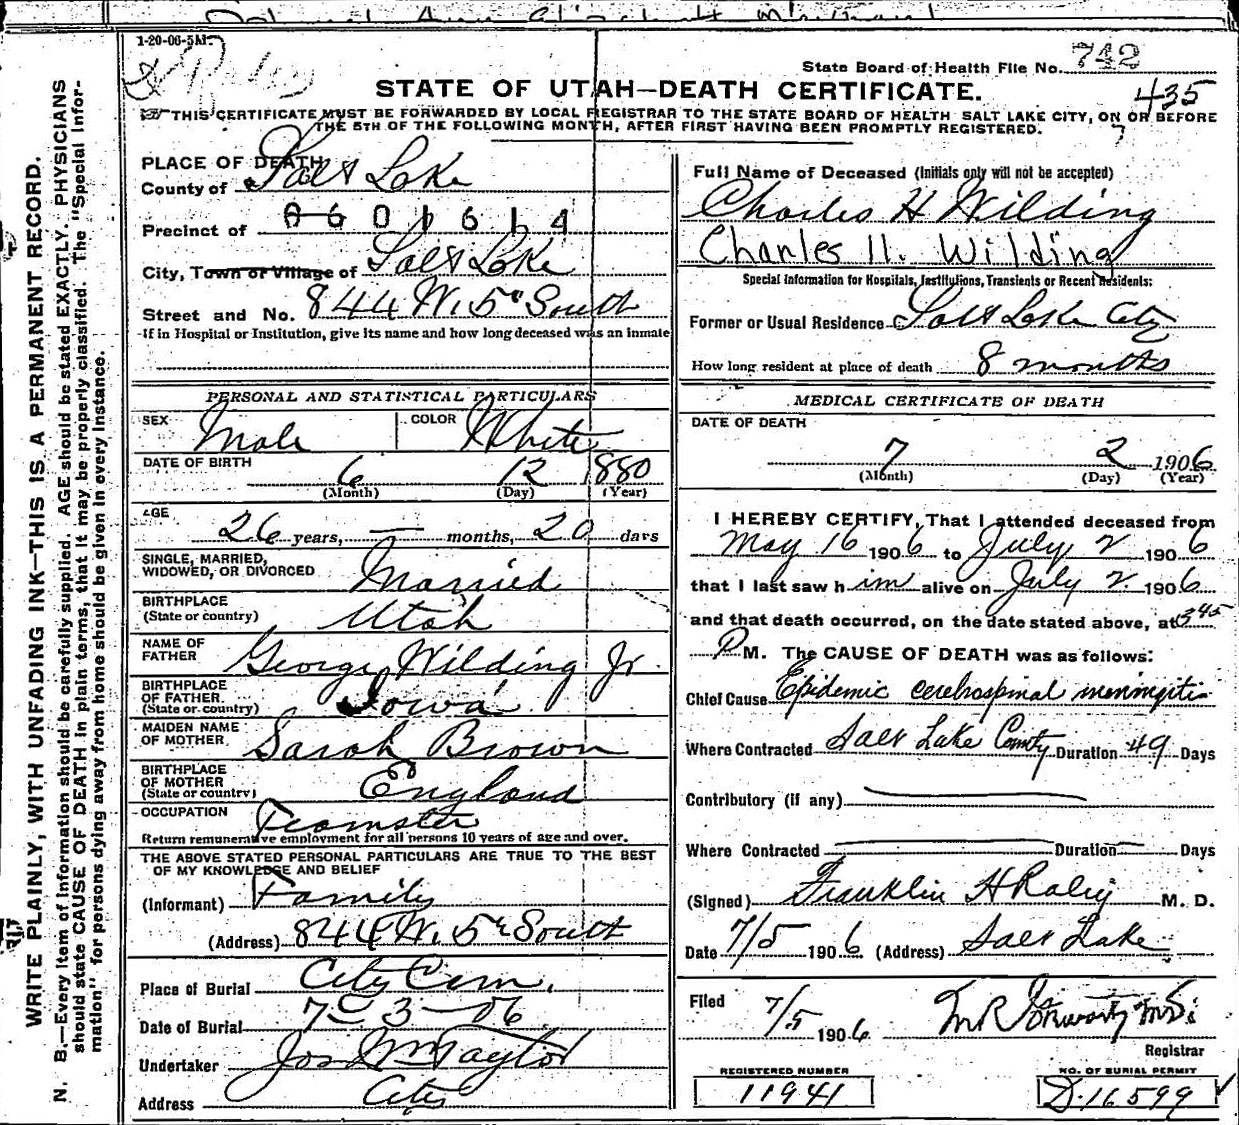 1-20-06-5M
State Board of Health File No. 742
435
STATE OF UTAH—DEATH CERTIFICATE.
THIS CERTIFICATE MUST BE FORWARDED BY LOCAL REGISTRAR TO THE STATE BOARD OF HEALTH SALT LAKE CITY, ON OR BEFORE
THE 5TH OF THE FOLLOWING MONTH, AFTER FIRST HAVING BEEN PROMPTLY REGISTERED.
WRITE PLAINLY, WITH UNFADING INK—THIS IS A PERMANENT RECORD.
N. B.—Every item of information should be carefully supplied. AGE should be stated EXACTLY. PHYSICIANS
should state CAUSE OF DEATH in plain terms, that it may be properly classified. The "Special Infor-
mation" for persons dying away from home should be given in every instance.
PLACE OF DEATH
County of Salt Lake
Precinct of 0601614
City, Town or Village of Salt Lake
Street and No. 844 W. 5th South
If in Hospital or Institution, give its name and how long deceased was an inmate
PERSONAL AND STATISTICAL PARTICULARS
SEX Male COLOR White
DATE OF BIRTH 6 12 1880
(Month) (Day) (Year)
AGE 26 years, — months, 20 days
SINGLE, MARRIED,
WIDOWED, OR DIVORCED Married
BIRTHPLACE
(State or country) Utah
NAME OF
FATHER George Wilding Jr.
BIRTHPLACE
OF FATHER.
(State or country) Iowa
MAIDEN NAME
OF MOTHER Sarah Brown
BIRTHPLACE
OF MOTHER
(State or country) England
OCCUPATION Teamster
Return remunerative employment for all persons 10 years of age and over.
THE ABOVE STATED PERSONAL PARTICULARS ARE TRUE TO THE BEST
OF MY KNOWLEDGE AND BELIEF
(Informant) Family
(Address) 844 W. 5th South
Place of Burial City Cem.
Date of Burial 7-3-06
Undertaker Jos Wm Taylor
Address City
Full Name of Deceased (Initials only will not be accepted)
Charles H Wilding
Charles H. Wilding
Special Information for Hospitals, Institutions, Transients or Recent Residents:
Former or Usual Residence Salt Lake City
How long resident at place of death 8 months
MEDICAL CERTIFICATE OF DEATH
DATE OF DEATH
7 2 1906
(Month) (Day) (Year)
I HEREBY CERTIFY, That I attended deceased from
May 16 1906 to July 2 1906
that I last saw him alive on July 2 1906
and that death occurred, on the date stated above, at 3 45
P M. The CAUSE OF DEATH was as follows:
Chief Cause Epidemic cerebrospinal meningitis
Where Contracted Salt Lake County Duration 49 Days
Contributory (if any)
Where Contracted — Duration — Days
(Signed) Franklin H Raley M. D.
Date 7/5 1906 (Address) Salt Lake
Filed 7/5 1906
Registrar
REGISTERED NUMBER
11941
NO. OF BURIAL PERMIT
D.16599